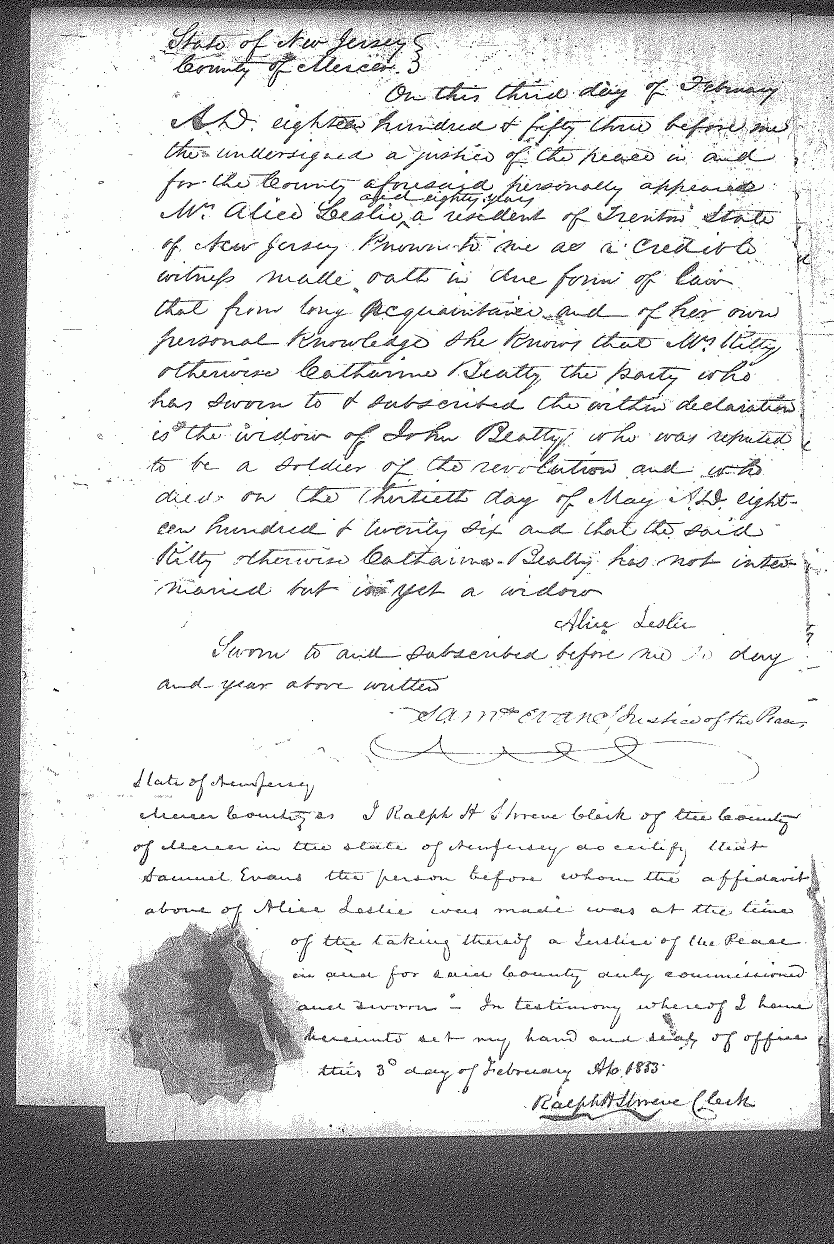 State of New Jersey }
County of Mercer. }
On this third day of February
A.D. eighteen hundred & fifty three before me
the undersigned a justice of the peace in and
for the County aforesaid personally appeared
aged eighty years
Mrs Alice Leslie ^ a resident of Trenton State
of New Jersey Known to me as a credible
witness made oath in due form of law
that from long acquaintance and of her own
personal Knowledge she Knows that Mrs Kitty
otherwise Catharine Beatty the party who
has sworn to & subscribed the within declaration
is the widow of John Beatty who was reputed
to be a soldier of the revolution and who
died on the thirtieth day of May A.D. eight-
een hundred & twenty six and that the said
Kitty otherwise Catharine Beatty has not inter-
married but is yet a widow
Alice Leslie
Sworn to and subscribed before me day
and year above written
Saml Evans Justice of the Peace
State of New Jersey
Mercer County ss I Ralph H Shreve Clerk of the County
of Mercer in the state of New Jersey do certify that
Samuel Evans the person before whom the affidavit
above of Alice Leslie was made was at the time
of the taking thereof a Justice of the Peace
in and for said County duly commissioned
and sworn - In testimony whereof I have
hereunto set my hand and seal of office
this 3d day of February AD 1853
Ralph H Shreve Clerk